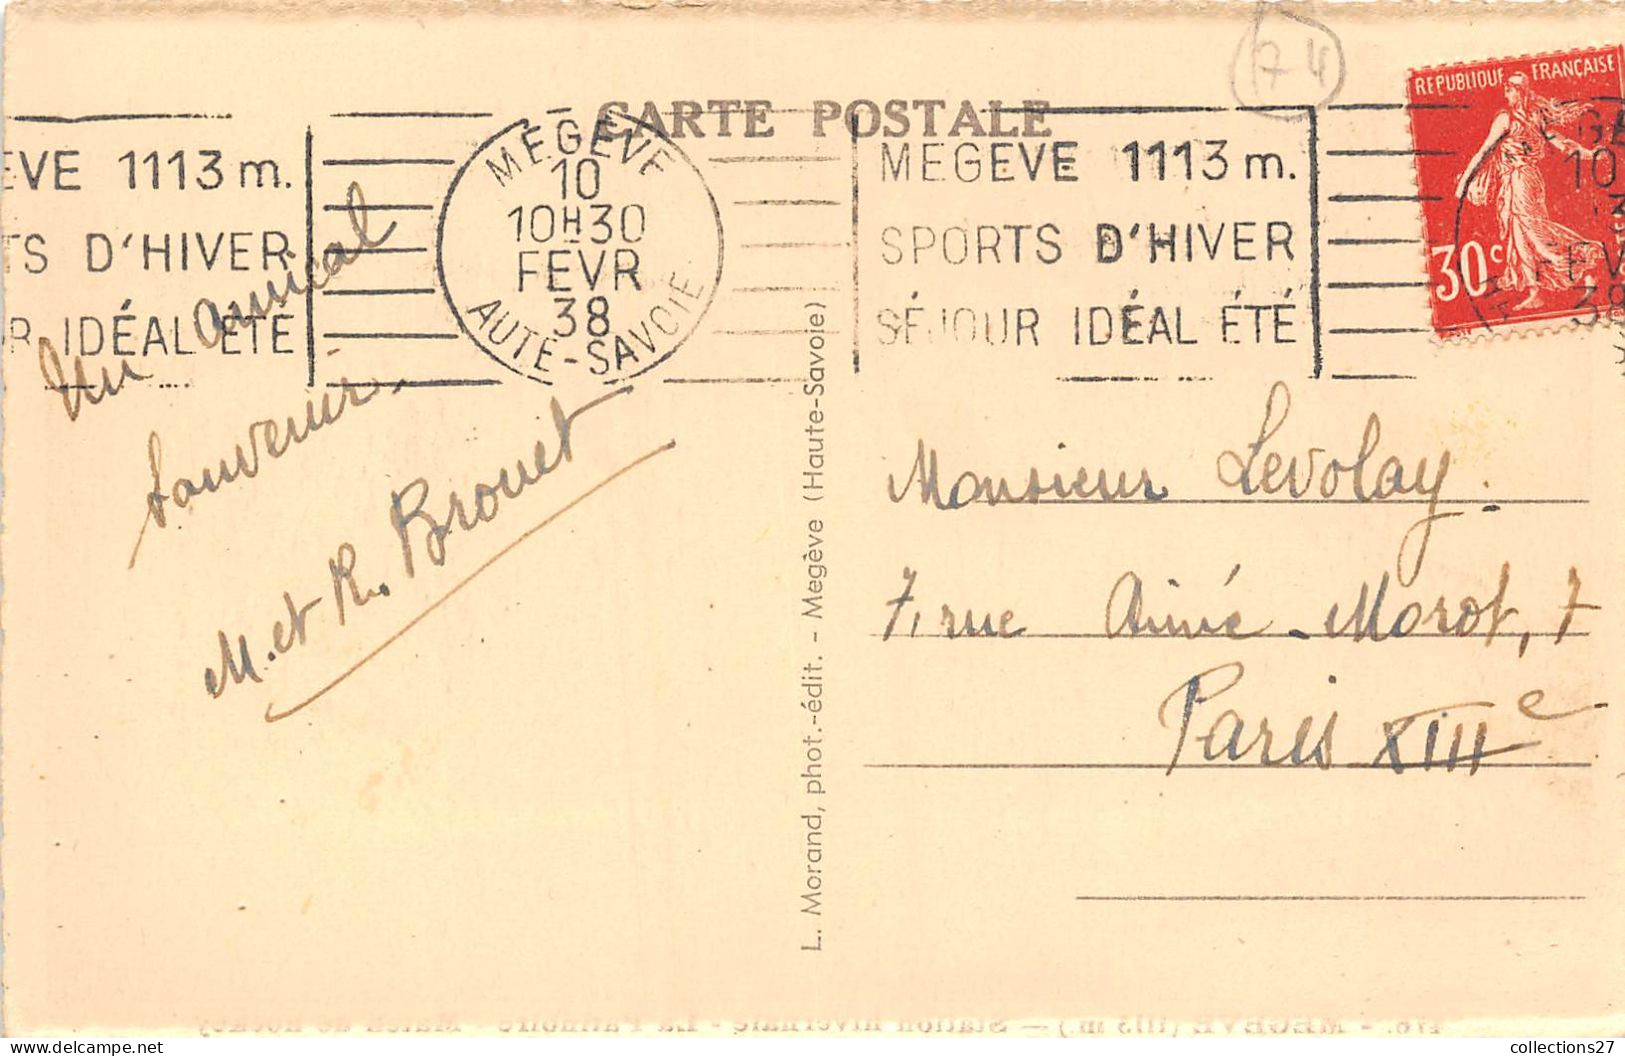 74
CARTE POSTALE
EVE 1113 m.
TS D'HIVER
R IDÉAL ÉTÉ
MEGEVE
10
10H30
FEVR
38
AUTE-SAVOIE
MEGEVE 1113 m.
SPORTS D'HIVER
SÉJOUR IDÉAL ÉTÉ
REPUBLIQUE FRANÇAISE
30c
Un amical
souvenir.
M. et R. Brouet
L. Morand, phot.-édit. - Megève (Haute-Savoie)
Monsieur Levolay.
7, rue Aimé-Morot, 7
Paris XIIIe
176. - MEGÈVE (1113 m.) — Station hivernale - La Patinoire - Match de hockey
collections27